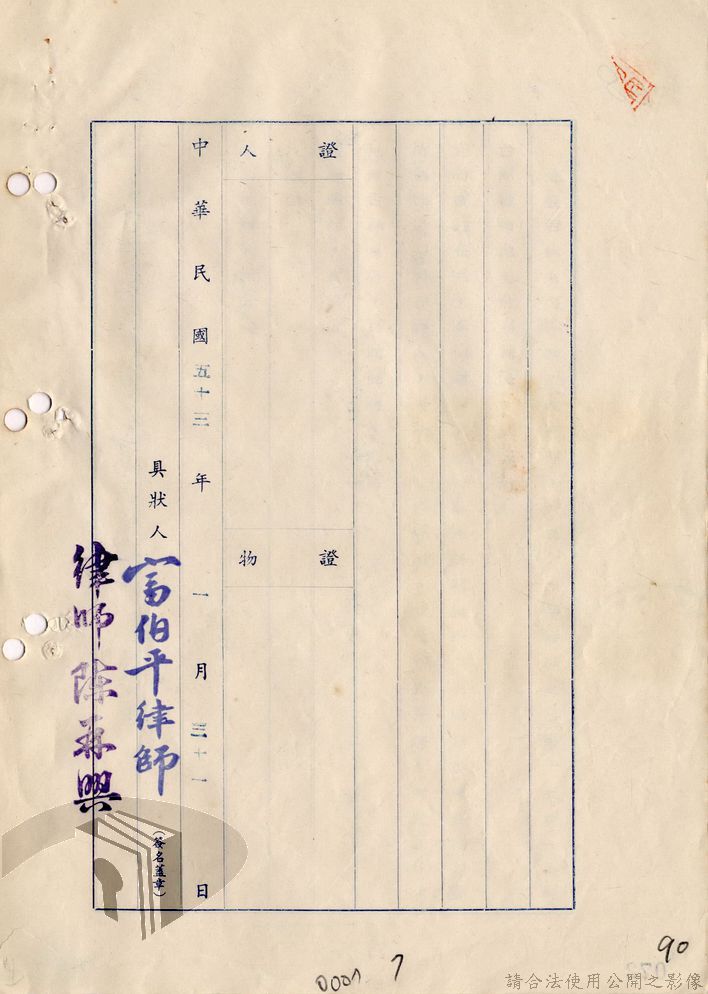 證人
證物
中華民國五十三年一月三十一日
具狀人
富伯平律師
(簽名蓋章)
律師陳森興
90
0001 7
請合法使用公開之影像